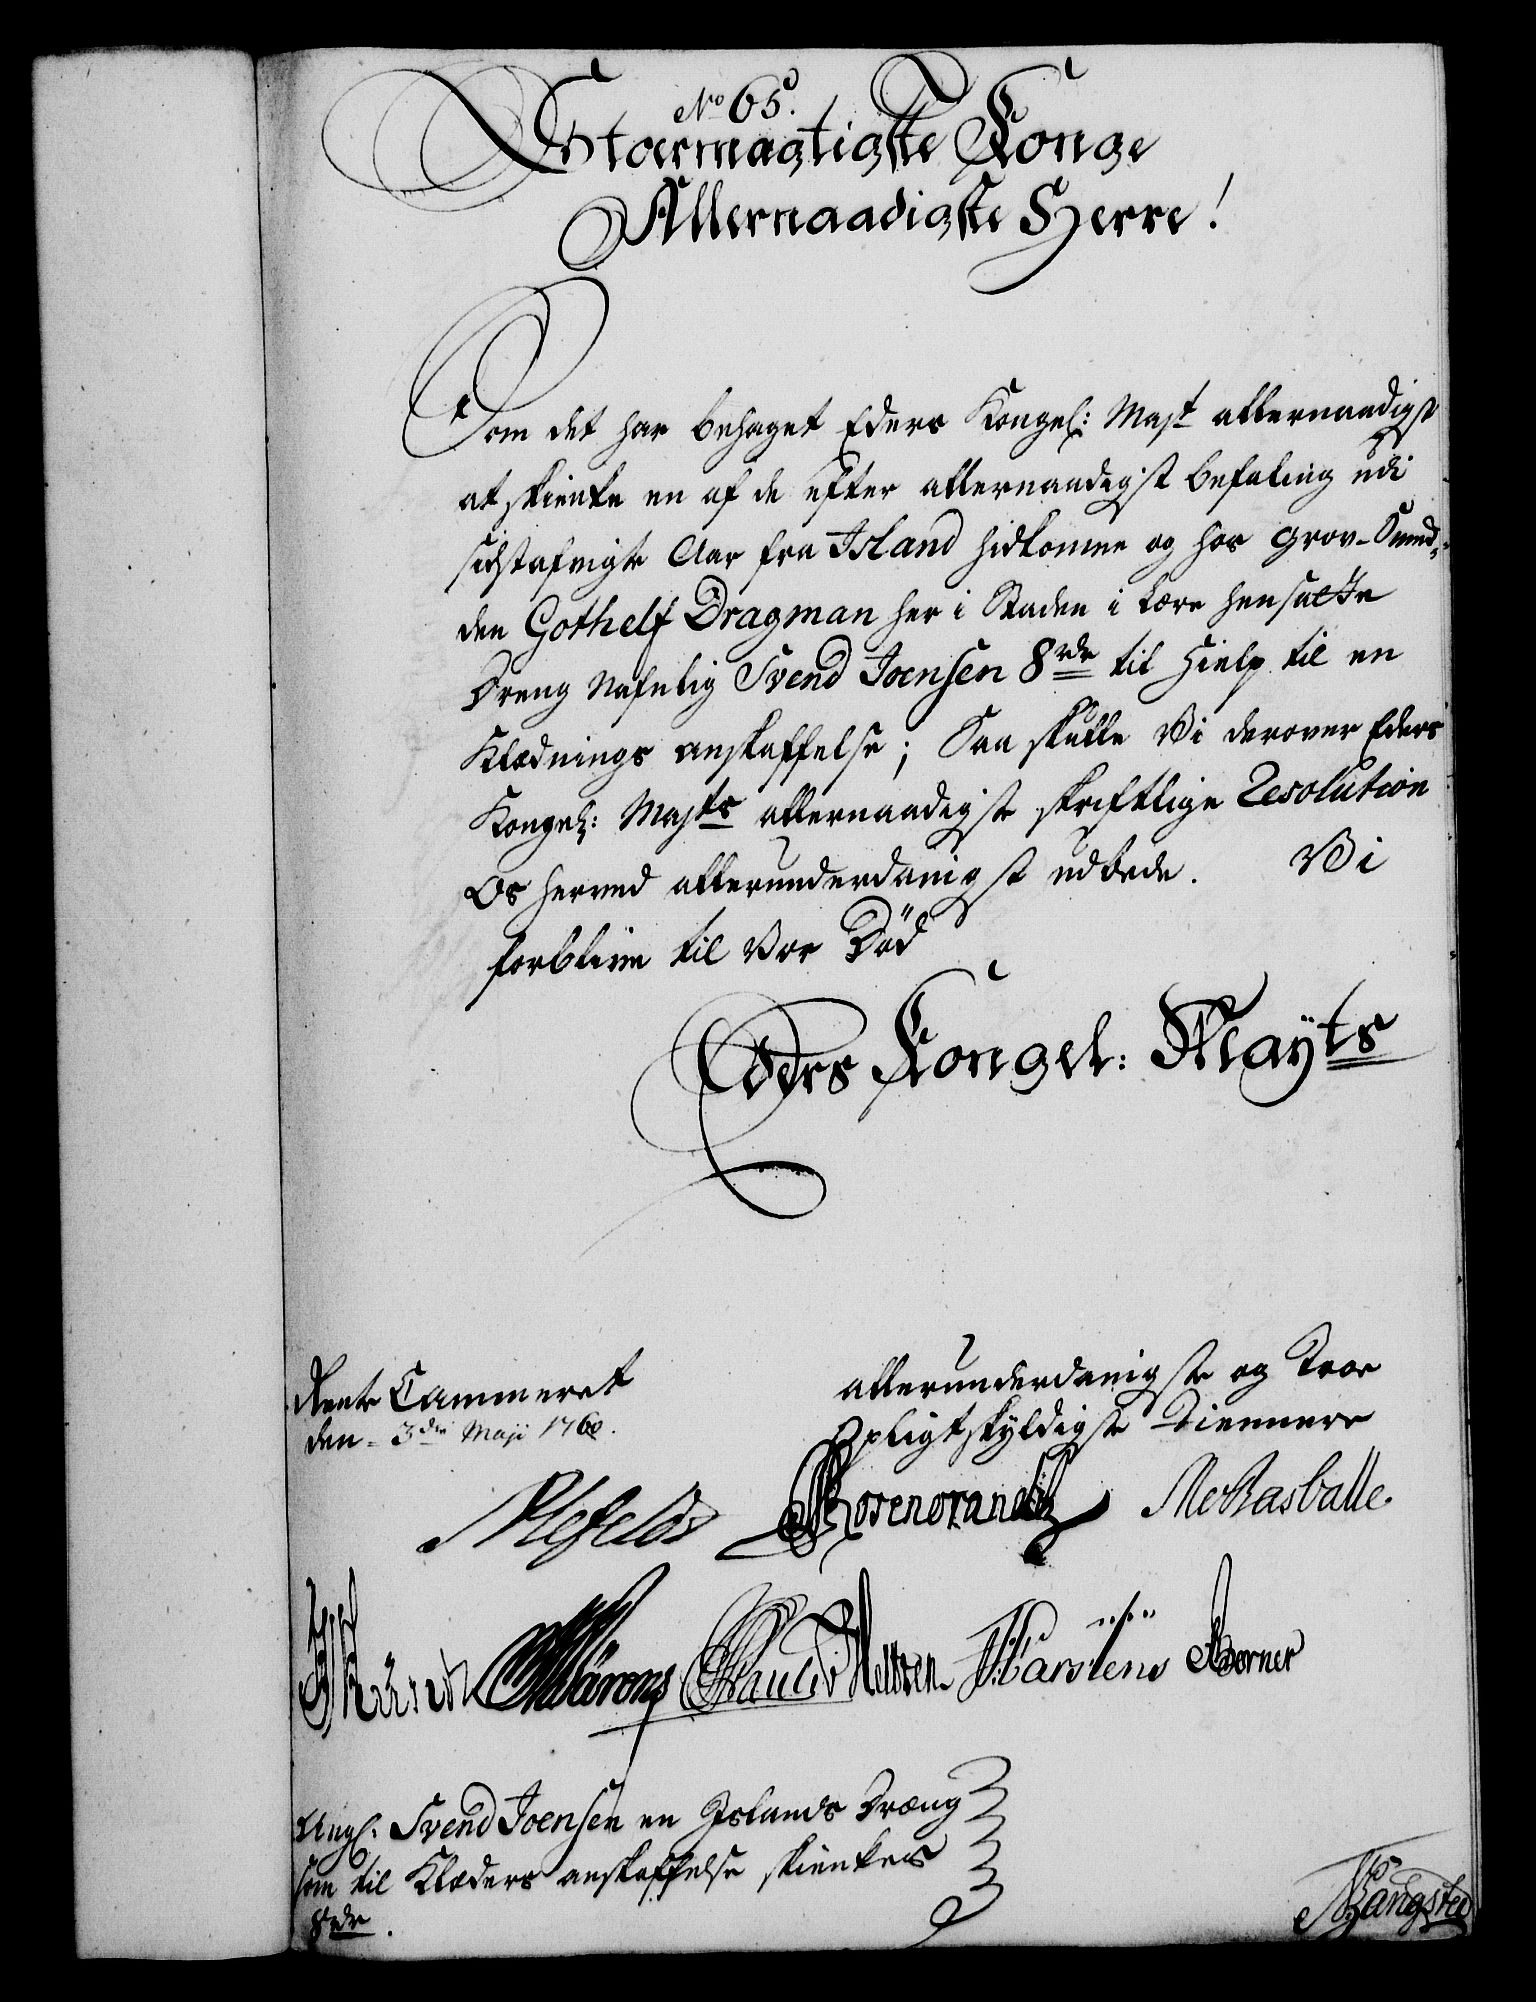 No 65.
Stormægtigste Konge
Allernaadigste Herre!
Som det har behaget Eders Kongel: Majt allernaadigst
at skienke en af de efter allernaadigst befaling udi
sidstafvigte Aar fra Island hidkomne og hos Grov-Smed-
den Gothelf Dragman her i Staden i Lære hensadte
Dreng Nafnlig Svend Joensen 8 rdr til Hielp til en
Klædnings anskaffelse; Saa skulle Vi derover Eders
Kongel: Majts allernaadigste skriftlige Resolution
Os herved allerunderdanigst udbede. Vi
forblive til Vor Død
Eders Kongel: Mayts
Rente Cammeret
den 3die Maji 1760.
allerunderdanigste og Troe
Pligtskyldigste Tiennere
Ahlefeldt Rosencrantz
Pauli Heltzen Karstens Borner
Angl. Svend Joensen en Islands Dræng
som til Klæders anskaffelse skienkes
8 rdr.
Bangsted